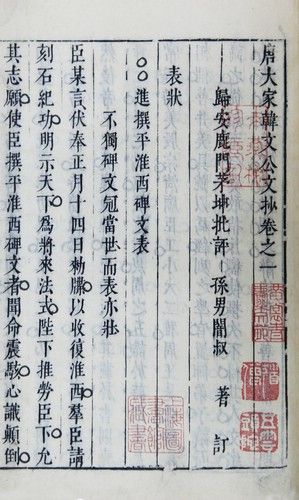 唐大家韓文公文抄卷之一
歸安鹿門茅坤批評 孫男闇叔 著 訂
表狀
○○進撰平淮西碑文表
不獨碑文冠當世而表亦壯
臣某言伏奉正月十四日勅牒以收復淮西羣臣請
刻石紀功明示天下爲將來法式陛下推勞臣下允
其志願使臣撰平淮西碑文者聞命震駭心識顛倒